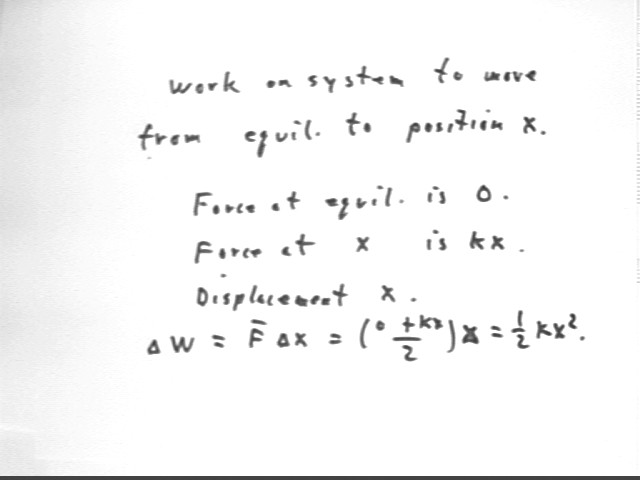 Work on system to move
from equil. to position x.
Force at equil. is 0.
Force at x is kx.
Displacement x.
ΔW = F̄ Δx = (0 + kx / 2) x = 1/2 kx².